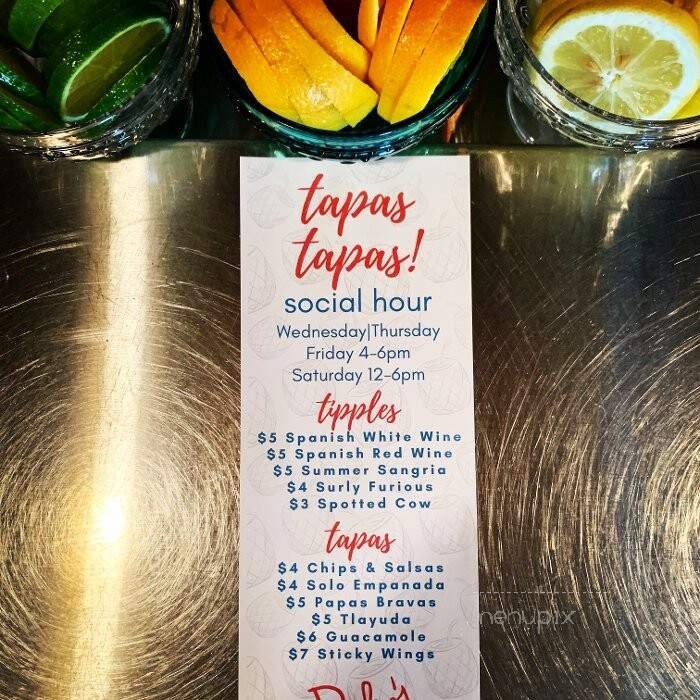 tapas
tapas!
social hour
Wednesday|Thursday
Friday 4-6pm
Saturday 12-6pm
tipples
$5 Spanish White Wine
$5 Spanish Red Wine
$5 Summer Sangria
$4 Surly Furious
$3 Spotted Cow
tapas
$4 Chips & Salsas
$4 Solo Empanada
$5 Papas Bravas
$5 Tlayuda
$6 Guacamole
$7 Sticky Wings
menupix